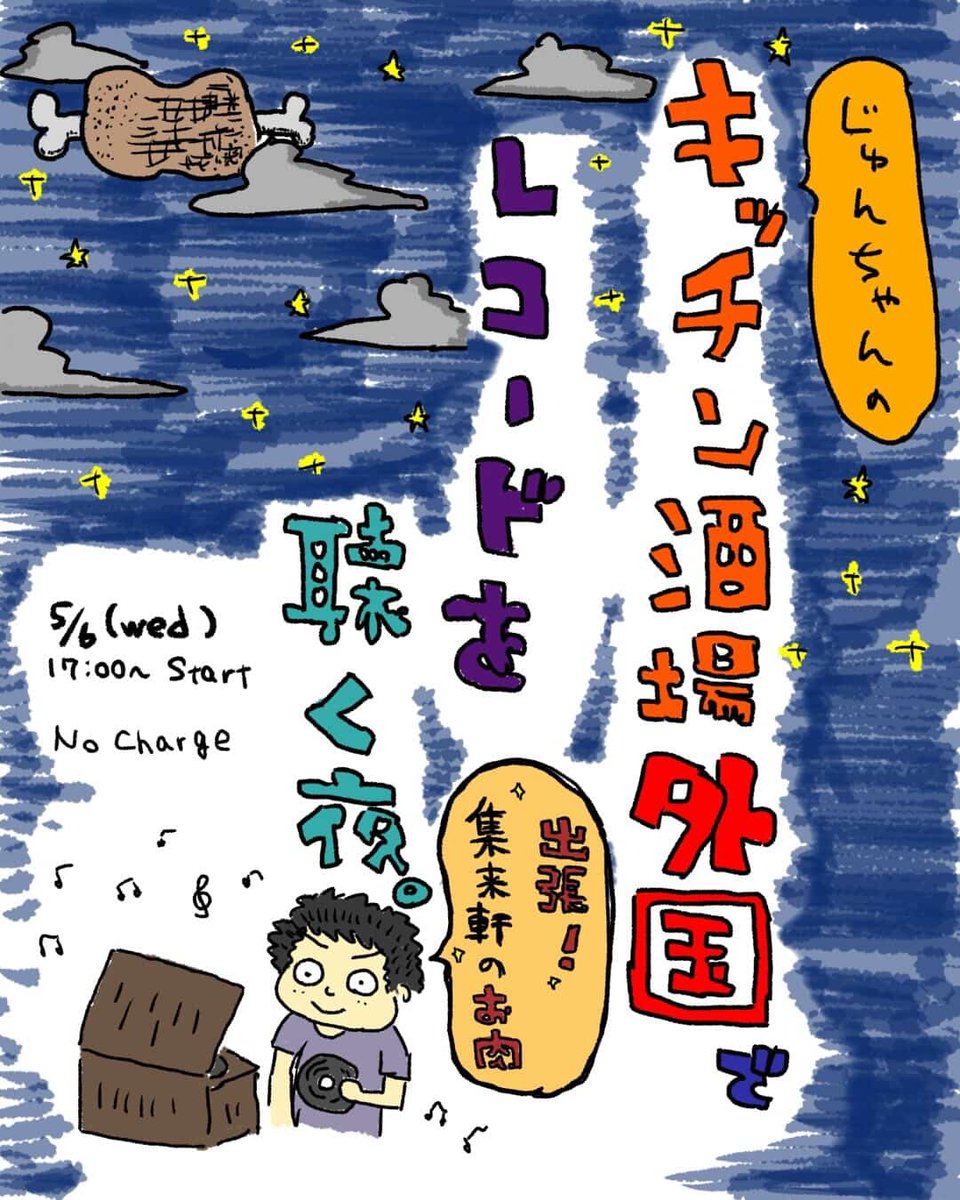 じゅんちゃんの
キッチン酒場外国で
レコードを
聴く夜。
出張!
集来軒のお肉
5/6(wed)
17:00~ Start
No Charge